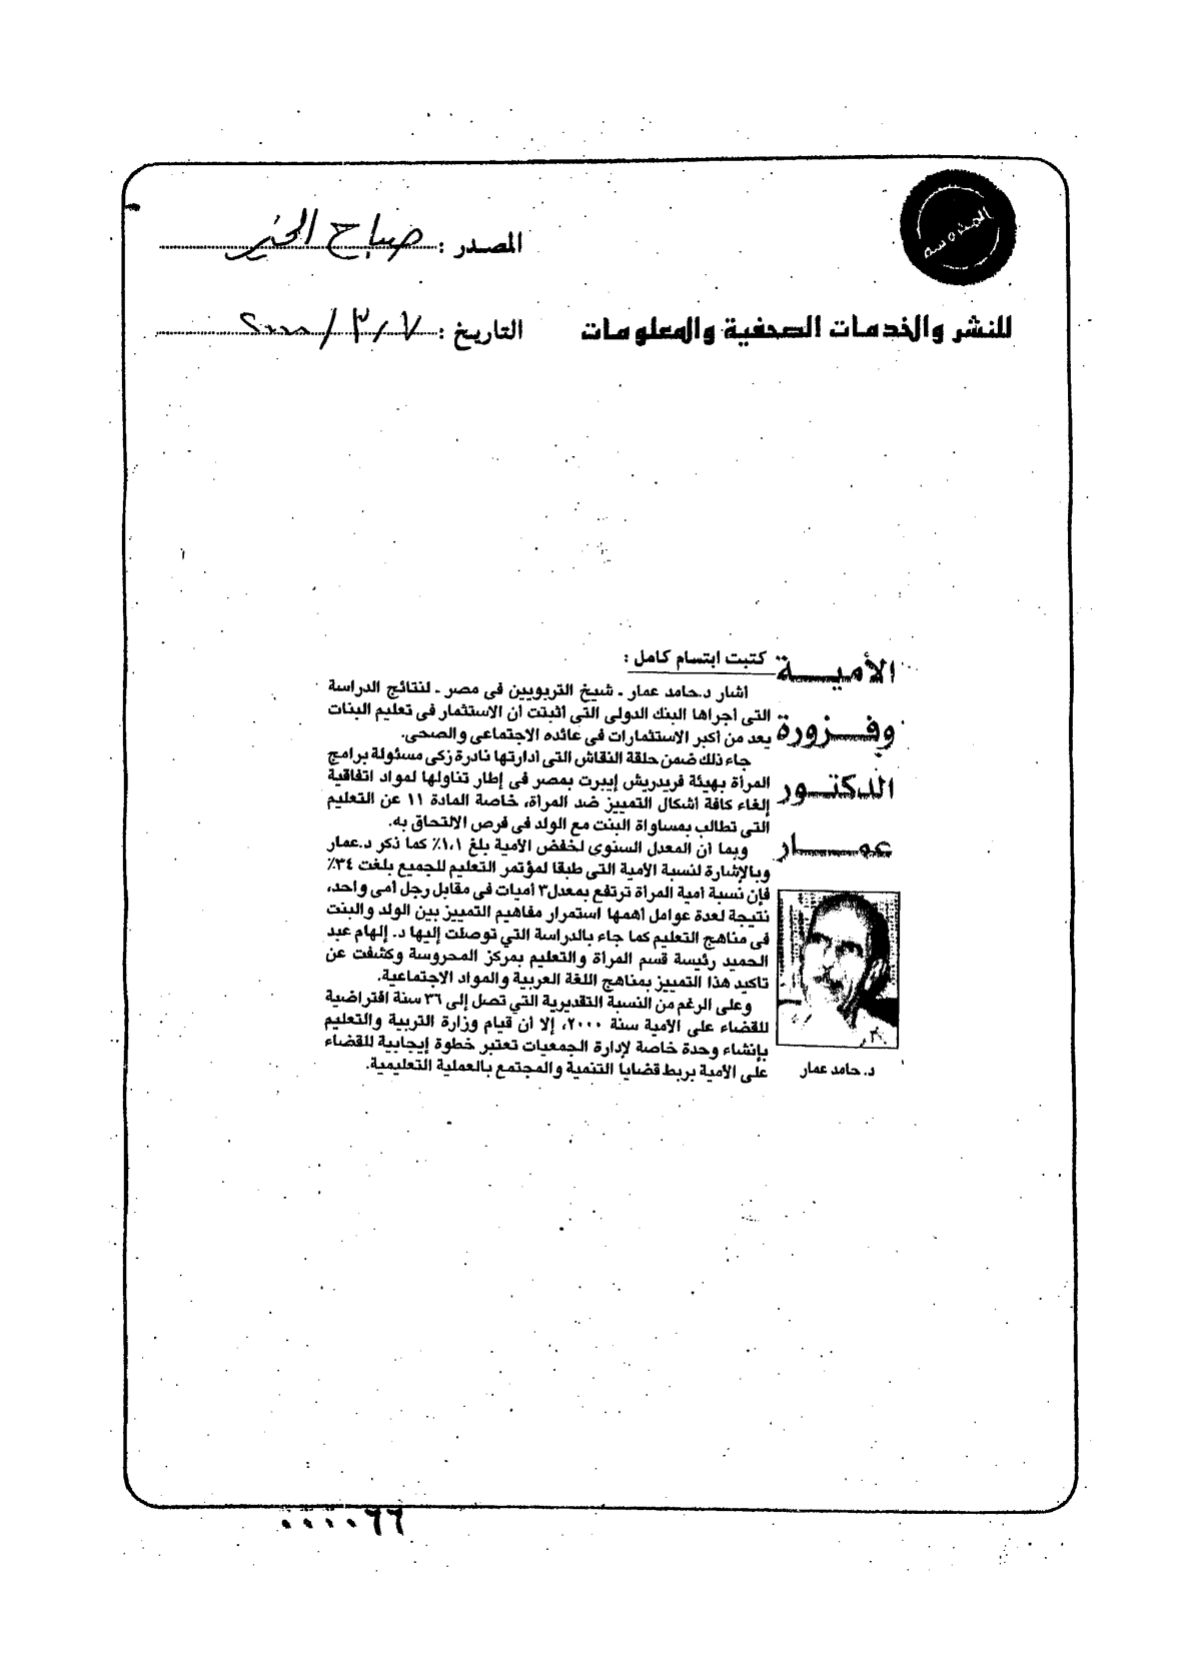 المحروسة
المصدر : صباح الخير
للنشر والخدمات الصحفية والمعلومات
التاريخ : ٧ / ٣ / ٢٠٠٠
الأميـــة
وفـــزورة
الدكتـــور
عمـــــار
كتبت ابتسام كامل :
أشار د.حامد عمار ـ شيخ التربويين فى مصر ـ لنتائج الدراسة
التى أجراها البنك الدولى التى أثبتت أن الاستثمار فى تعليم البنات
يعد من أكبر الاستثمارات فى عائده الاجتماعى والصحى.
جاء ذلك ضمن حلقة النقاش التى أدارتها نادرة زكى مسئولة برامج
المرأة بهيئة فريدريش إيبرت بمصر فى إطار تناولها لمواد اتفاقية
إلغاء كافة أشكال التمييز ضد المرأة، خاصة المادة ١١ عن التعليم
التى تطالب بمساواة البنت مع الولد فى فرص الالتحاق به.
وبما أن المعدل السنوى لخفض الأمية بلغ ١،١٪ كما ذكر د.عمار
وبالإشارة لنسبة الأمية التى طبقا لمؤتمر التعليم للجميع بلغت ٣٤٪
فإن نسبة أمية المرأة ترتفع بمعدل٣ أميات فى مقابل رجل أمى واحد،
نتيجة لعدة عوامل أهمها استمرار مفاهيم التمييز بين الولد والبنت
فى مناهج التعليم كما جاء بالدراسة التي توصلت إليها د. إلهام عبد
الحميد رئيسة قسم المرأة والتعليم بمركز المحروسة وكشفت عن
تأكيد هذا التمييز بمناهج اللغة العربية والمواد الاجتماعية.
وعلى الرغم من النسبة التقديرية التي تصل إلى ٣٦ سنة افتراضية
للقضاء على الأمية سنة ٢٠٠٠، إلا أن قيام وزارة التربية والتعليم
بإنشاء وحدة خاصة لإدارة الجمعيات تعتبر خطوة إيجابية للقضاء
على الأمية بربط قضايا التنمية والمجتمع بالعملية التعليمية.
د. حامد عمار
٠٠٠٠٦٦